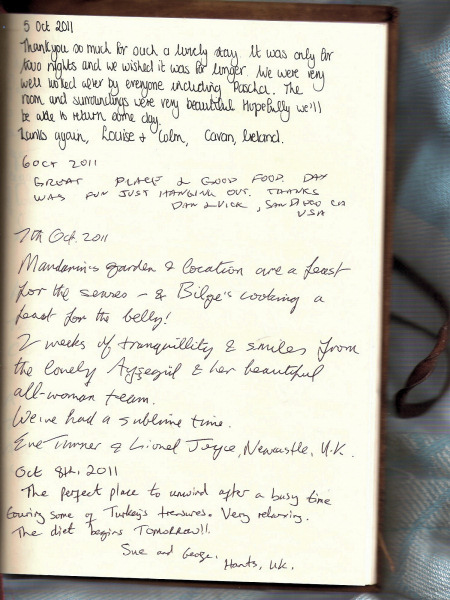 5 Oct 2011
Thankyou so much for such a lovely stay. It was only for
two nights and we wished it was for longer. We were very
well looked after by everyone including Pascha. The
room and surroundings were very beautiful Hopefully we'll
be able to return some day.
Thanks again, Louise & Colm, Cavan, Ireland.
6 OCT 2011
GREAT PLACE & GOOD FOOD. DAY
WAS FUN JUST HANGING OUT. THANKS
DAN & VICK, SAN DIEGO CA
USA
7th Oct. 2011
Mandarin's garden & location are a feast
for the senses - & Bilge's cooking a
feast for the belly!
2 weeks of tranquillity & smiles from
the lovely Ayşegül & her beautiful
all-woman team.
We've had a sublime time.
Eve Turner & Lionel Joyce, Newcastle, U.K.
Oct 8th, 2011
The perfect place to unwind after a busy time
touring some of Turkey's treasures. Very relaxing.
The diet begins Tomorrow!!
Sue and George.
Hants, UK.